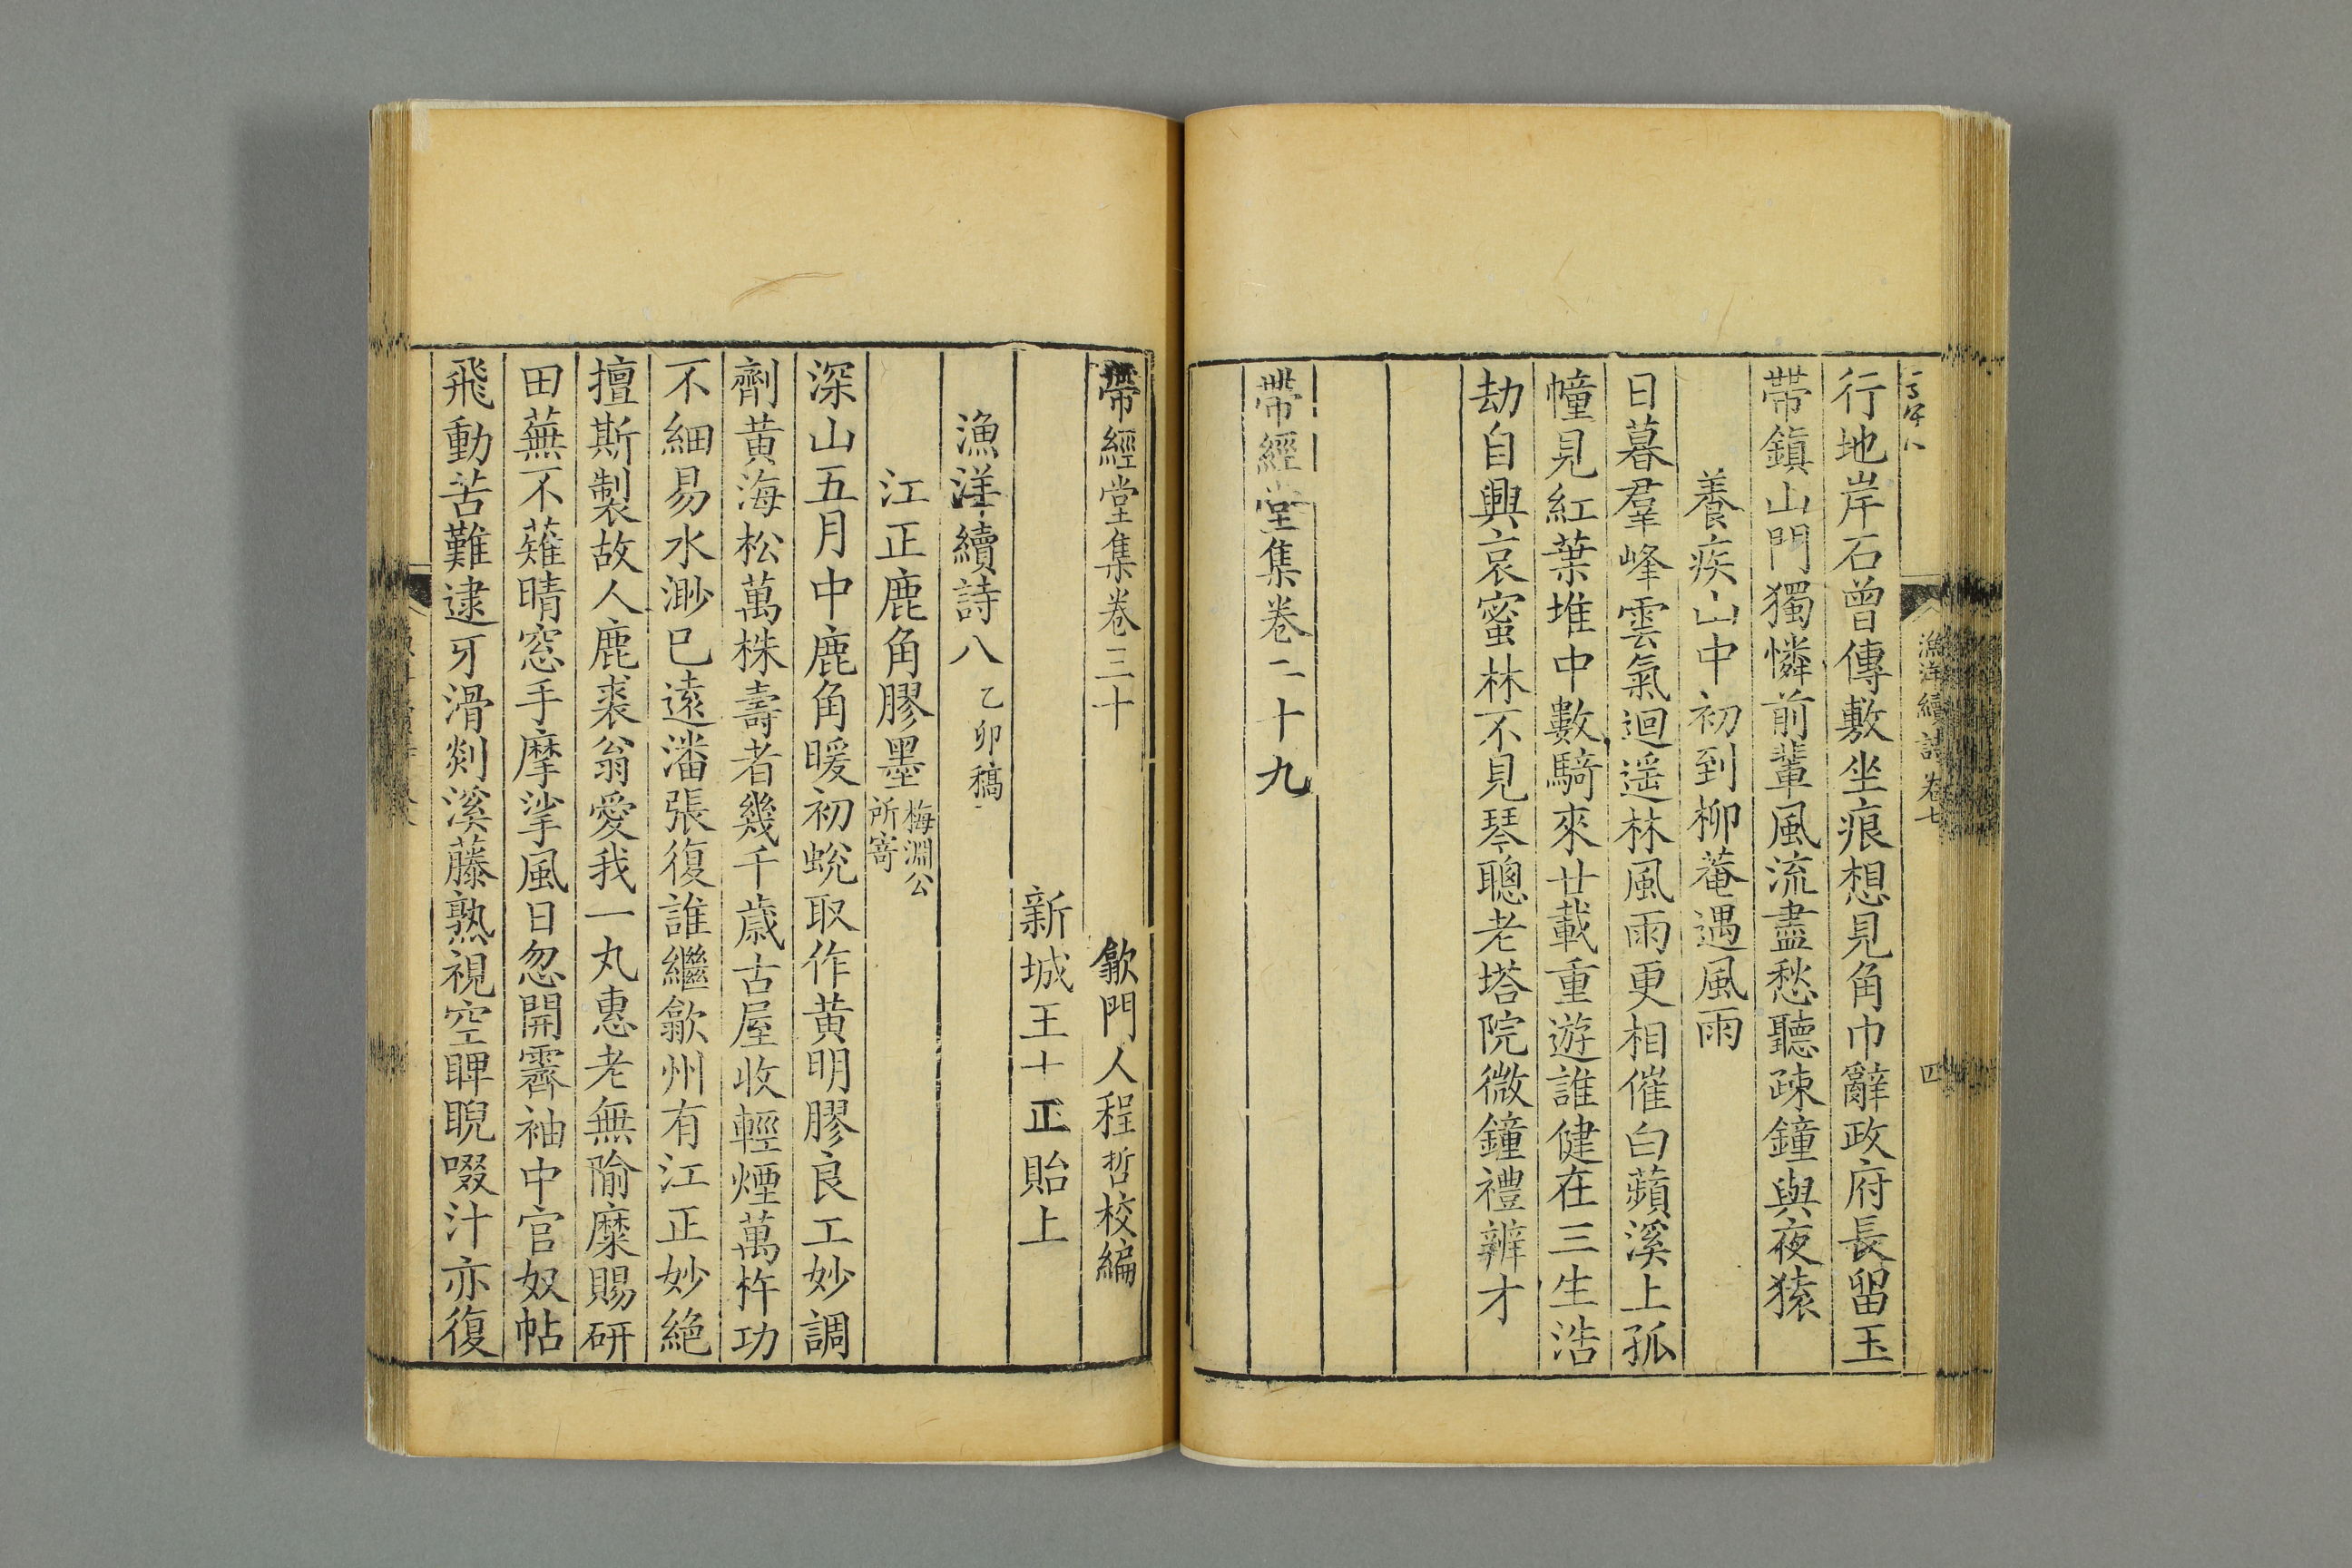 漁洋續詩卷七
四
行地岸石曾傳敷坐痕想見角巾辭政府長留玉
帶鎮山門獨憐前輩風流盡愁聽疎鐘與夜猿
養疾山中初到柳菴遇風雨
日暮羣峰雲氣迴遥林風雨更相催白蘋溪上孤
幢見紅葉堆中數騎來廿載重遊誰健在三生浩
劫自興哀蜜林不見琴聰老塔院微鐘禮辨才
帶經堂集卷二十九
帶經堂集卷三十
歙門人程哲校編
新城王士正貽上
漁洋續詩八 乙卯稿
江正鹿角膠墨 梅淵公所寄
深山五月中鹿角暖初蛻取作黄明膠良工妙調
劑黄海松萬株壽者幾千歲古屋收輕煙萬杵功
不細易水渺已遠潘張復誰繼歙州有江正妙絶
擅斯製故人鹿裘翁愛我一丸惠老無隃糜賜研
田蕪不薙晴窓手摩挲風日忽開霽袖中官奴帖
飛動苦難逮牙滑剡溪藤熟視空睥睨啜汁亦復